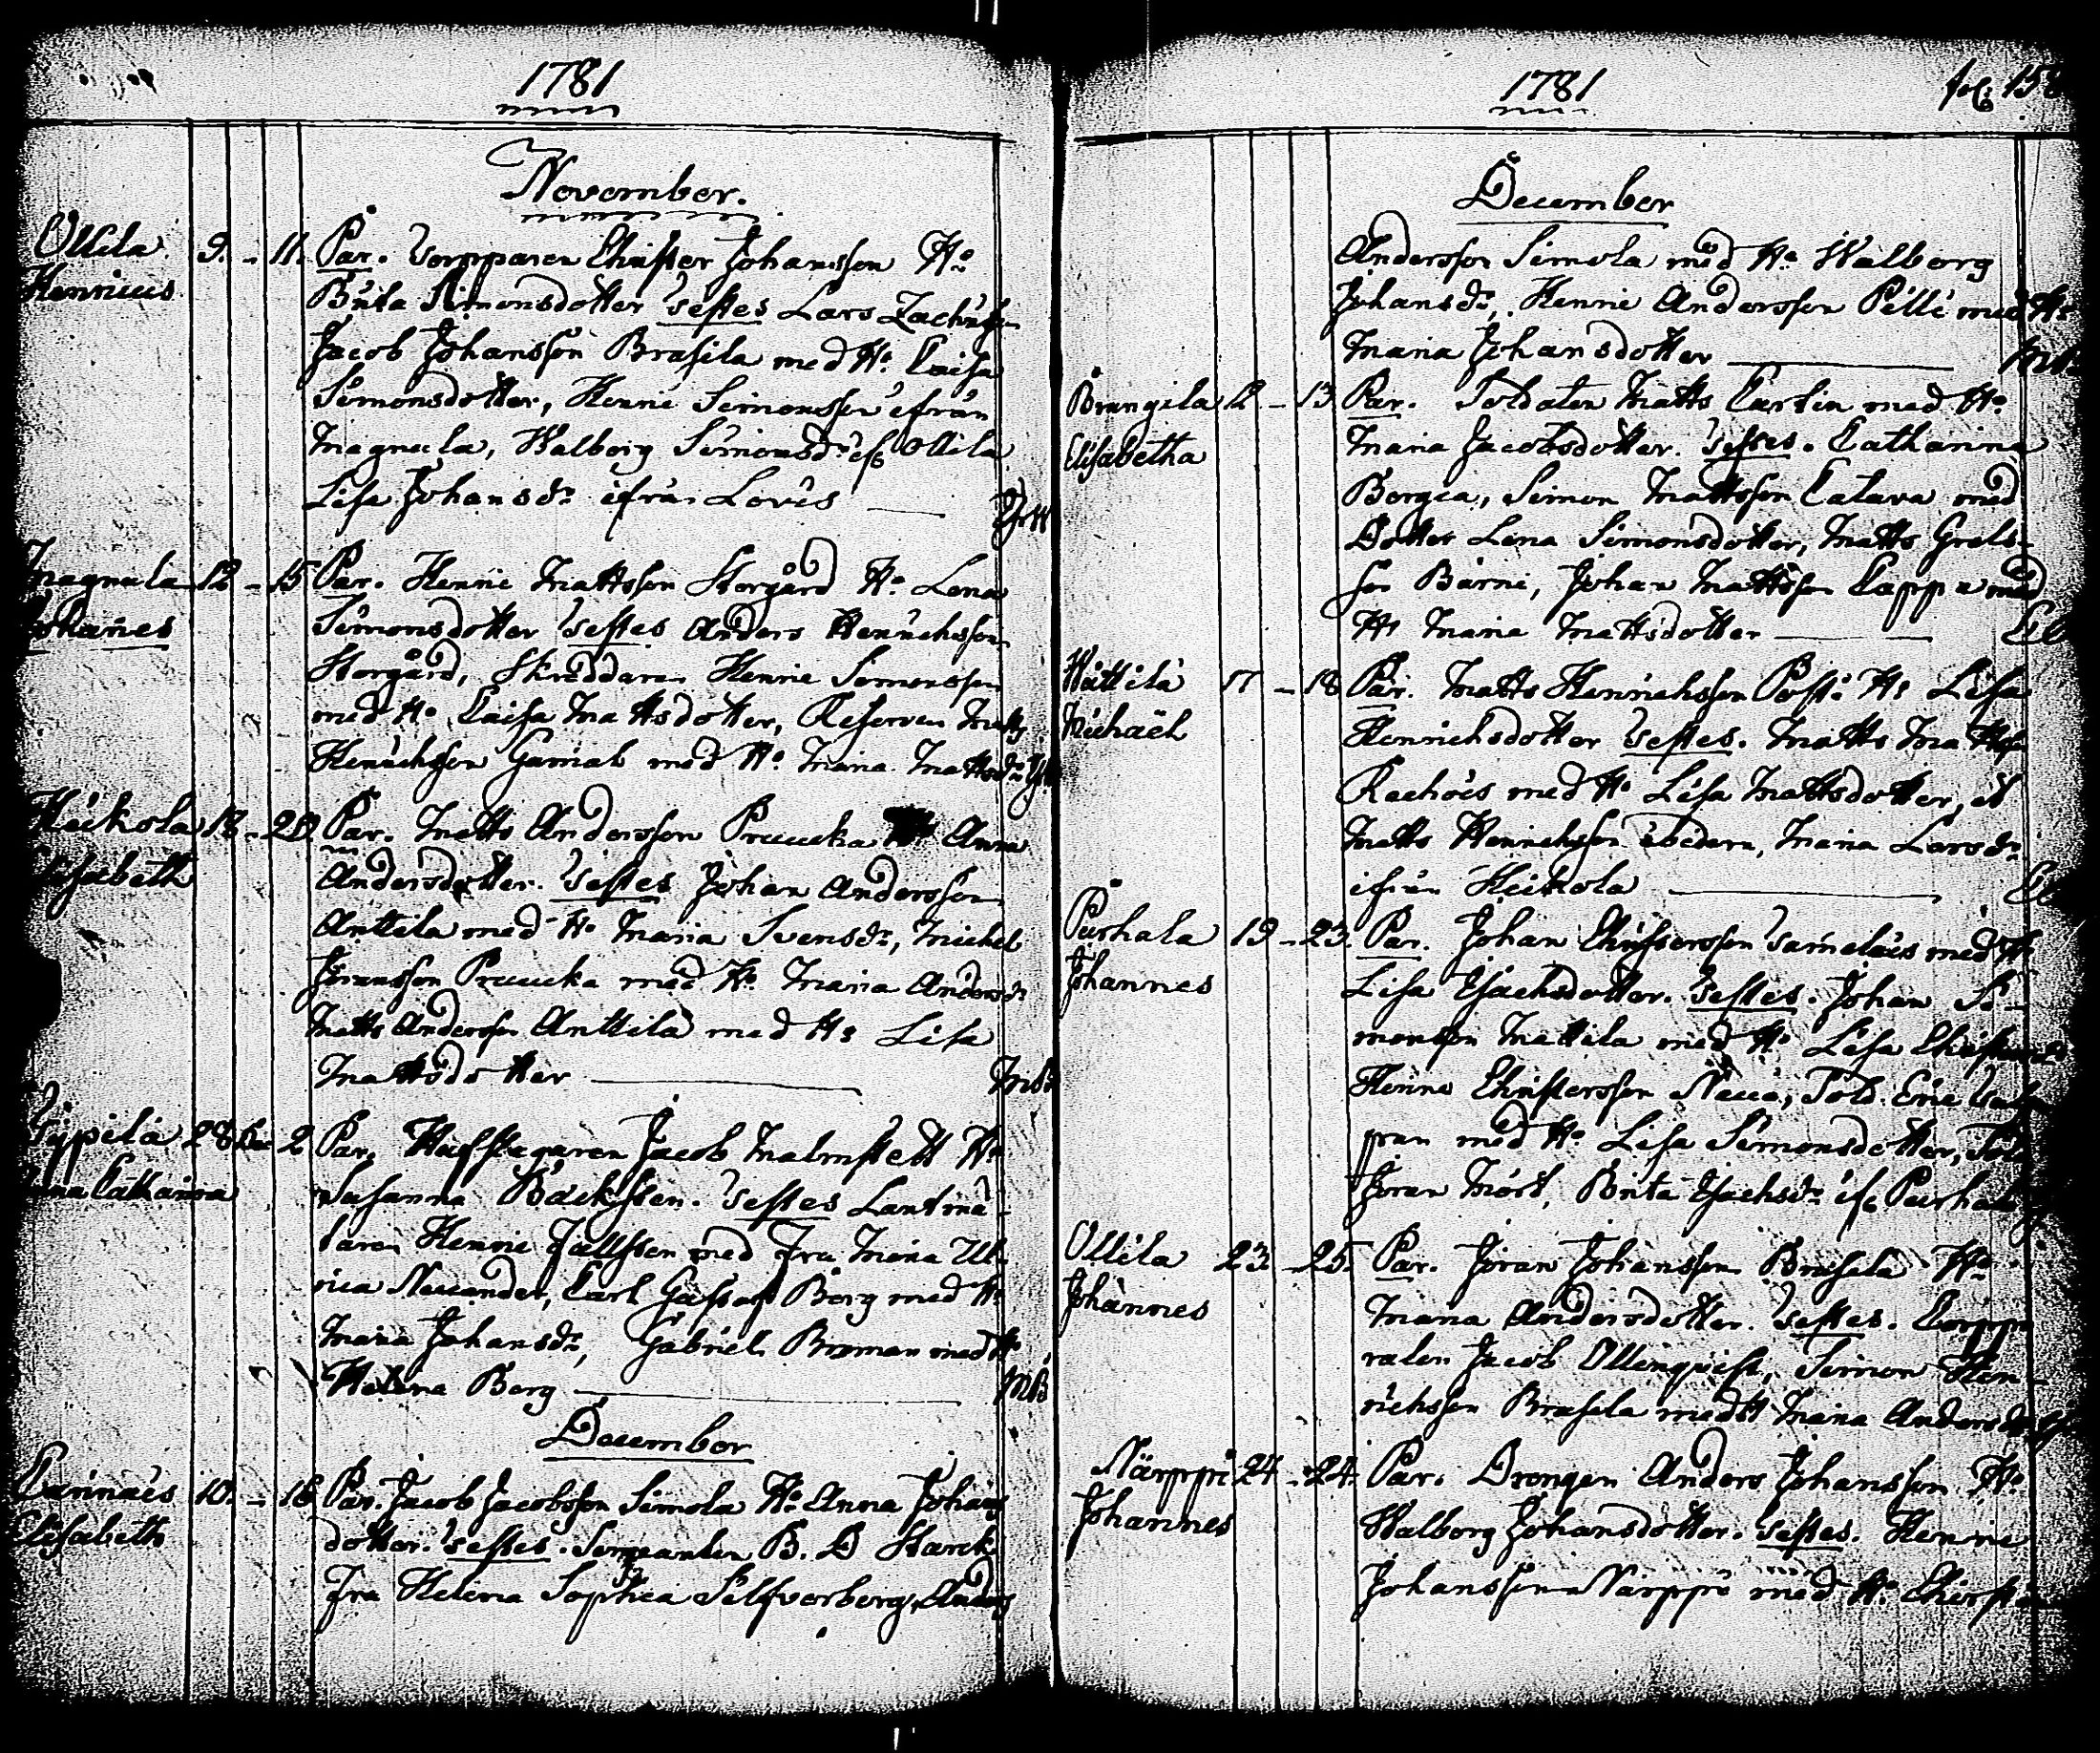 1781
November.
Ollila 9. - 11. Par. Torpparen Christer Johansson H:o
Henricus Brita Simonsdotter Testes Lars Zachriss
Jacob Johansson Brasila med H:o Caisa
Simonsdotter, Henric Simonsson ifrån
Magnula, Walborg Simonsd:r if: Ollila
Lisa Johansd:r ifrån Lovis
Magnula 12 - 15 Par. Henric Mattsson Storgård H:o Lena
Johañes Simonsdotter Testes Anders Henrichsson
Storgård, Skreddaren Henric Simonsson
med H:o Caisa Mattsdotter, Reserven Matts
Henrichsson Gamal med H:o Maria Mattsd:r
Heickola 18 - 20 Par. Matts Andersson Pruucka Anna
Elisabeth Andersdotter. Testes Johan Andersson
Anttila med H:o Maria Svensd:r, Michel
Jöransson Pruucka med H:o Maria Andersd:r
Matts Andersson Anttila med H:o Lisa
Mattsdotter MB
28 Dec 2 Par. Jacob Malmstedt H:o
Catharina Susanna Bäckssten. Testes Lantmä-
taren Henric Fallssen med Fru Maria Ul-
rica Neuander, Carl Gustaf Borg med H:o
Maria Johansd:r, Gabriel Broman med H:o
Helena Borg MB
December
10. - 16 Par. Jacob Jacobsson Simola H:o Anna Johans
Elisabeth dotter. Testes. Sergeanten B. D Starck
Fru Helena Sophia Silfverberg, Anders
1781 fol: 158
December
Andersson Simola med H:o Walborg
Johansd:r, Henric Andersson Pilli med H:o
Maria Johansdotter
Brungila 12 - 13 Par. Soldaten Matts Carlin med H:o
Elisabetha Maria Jacobsdotter. Testes. Catharina
Borgea, Simon Mattsson Catava med
Dotter Lena Simonsdotter, Matts Grels-
son Bärni, Johan Mattsson Cappa med
H:o Maria Mattsdotter
Wättilä 17 - 18 Par. Matts Henrichsson Post: H:o Lisa
Michaël Henrichsdotter Testes. Matts Mattss
med H:o Lisa Mattsdotter,
Matts Henrichsson ibidem, Maria Larsd:r
ifrån Heickola
Purhala 19 - 23. Par. Johan Christersson med H:o
Johannes Lisa Isachsdotter. Testes. Johan Si-
monsson Mattila med H:o Lisa
Henric Christersson Sold. Eric
med H:o Lisa Simonsdotter, Sold
Jöran Mört, Brita Isachsd:r if: Purhala
Ollila 23. - 25. Par. Jöran Johansson Brasila H:o
Johannes Maria Andersdotter. Testes. Corppo
ralen Jacob Ollinqvist, Simon Hen-
richsson Brasila med H: Maria Andersd
Närppi 24 - 24. Par. Drengen Anders Johansson H:o
Johannes Walborg Johansdotter. Testes. Henric
Johansson Närppi med H:o